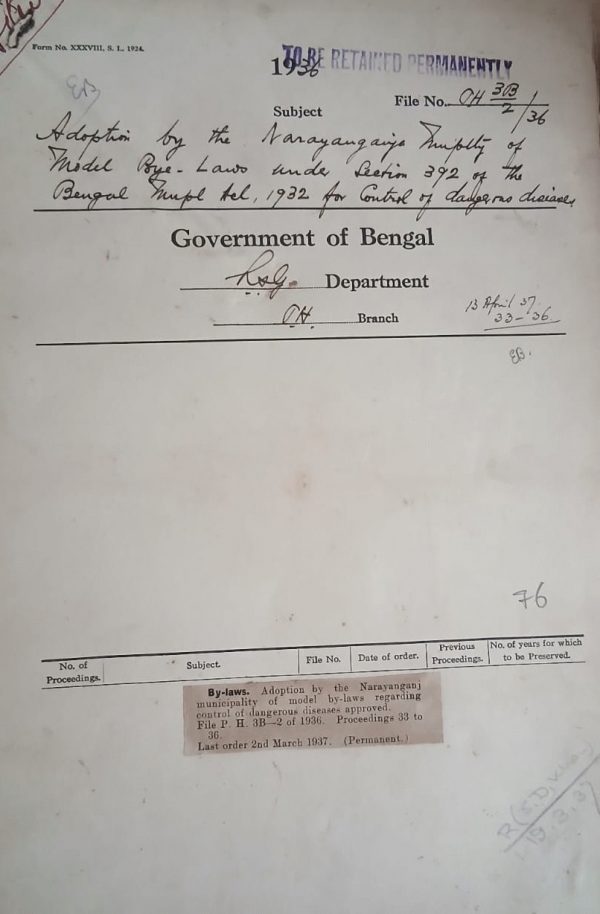 Form No. XXXVIII, S. L., 1924.
TO BE RETAINED PERMANENTLY
1936
EB
File No. PH 3B/2 1/36
Subject
Adoption by the Narayanganje Muplty of
Model Bye-Laws under Section 392 of the
Bengal Mupl Act, 1932 for Control of dangerous diseases,
Government of Bengal
LSG. Department
PH. Branch
13 April 37.
33-36
EB.
76
No. of Proceedings.
Subject.
File No.
Date of order.
Previous Proceedings.
No. of years for which to be Preserved.
By-laws. Adoption by the Narayanganj
municipality of model by-laws regarding
control of dangerous diseases approved.
File P. H. 3B—2 of 1936. Proceedings 33 to
36.
Last order 2nd March 1937. (Permanent.)